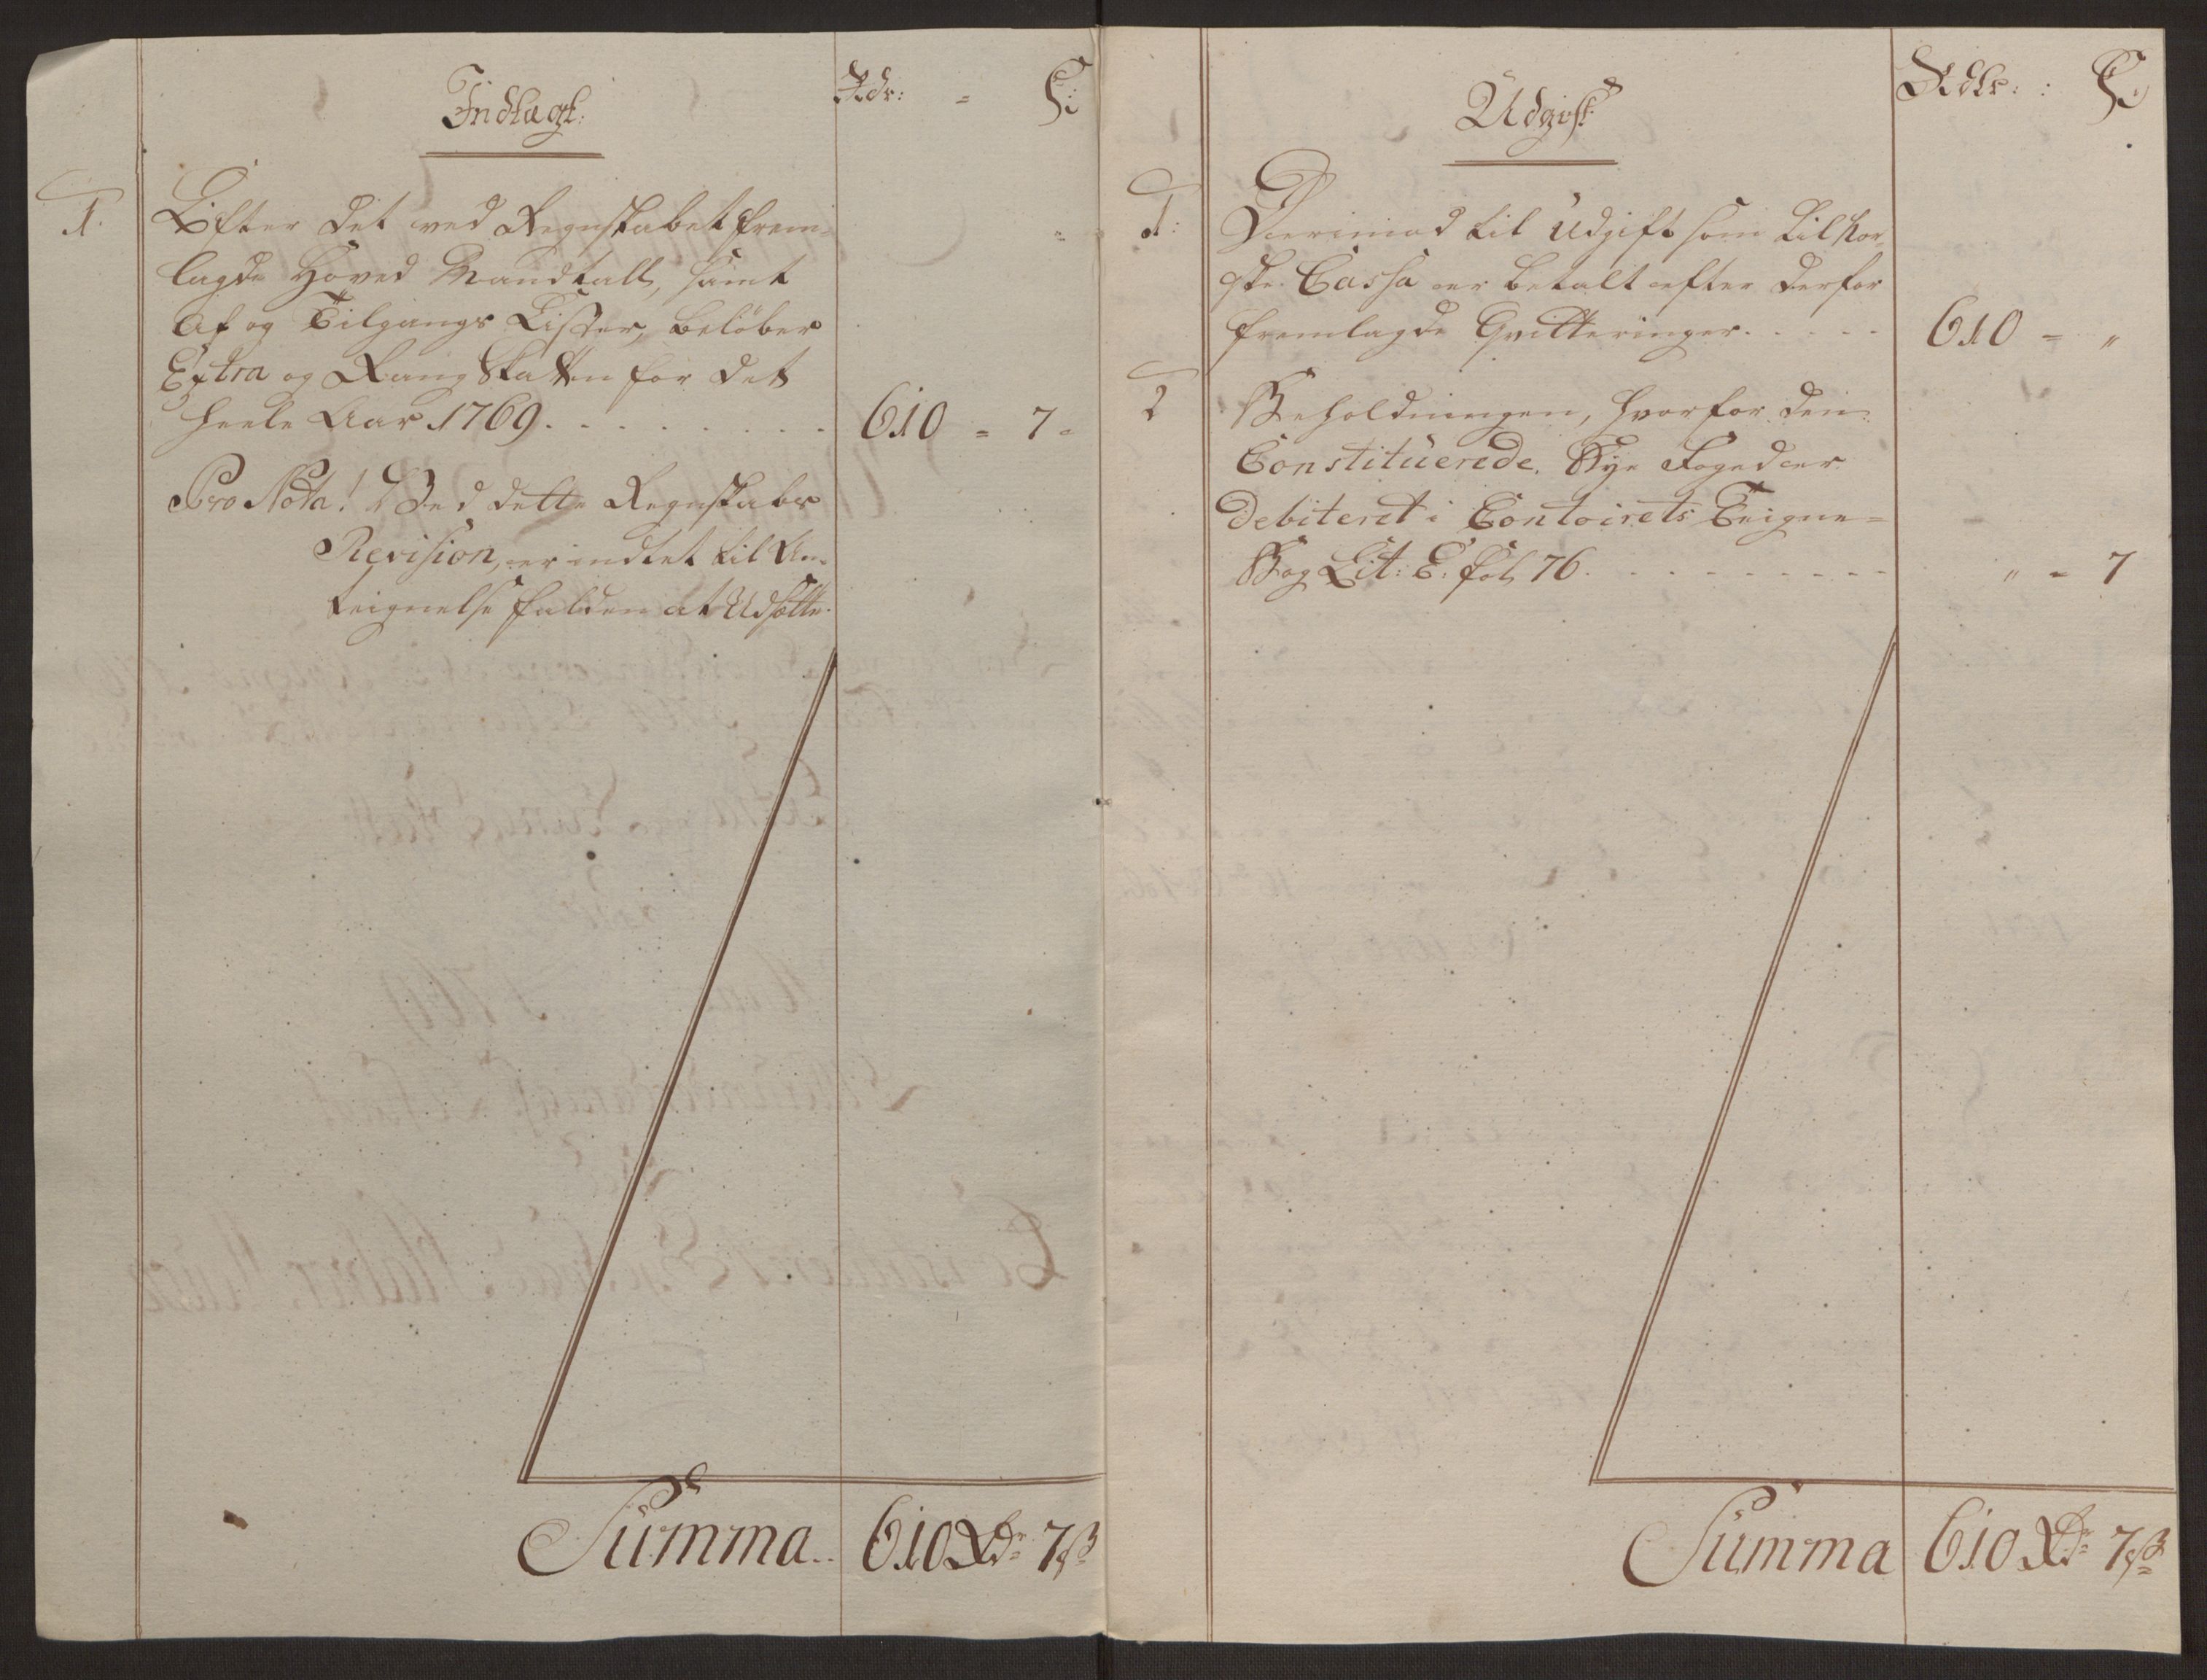 Indtægt.
Rdr: - ß:
1.
Efter det ved Regnskabet frem-
lagde Hoved Mandtall, samt
Af og Tilgangs Lister, beløber
Extra og Rang Skatten for det
heele Aar 1769. . . . . . . . . 610 - 7 -
Pro Nota! Ved dette Regnskabs
Revision, er indtet til An-
teignelse falden at Udsætte.
Summa.. 610 Rdr 7 ß
Udgift
Rdlr: : ß:
1:
Derimod til Udgift som til
Cassa er betalt efter derfor
fremlagde Qvitteringer. . . . . 610 - "
2
Beholdningen, hvorfor den
Constituerede Bye Foged er
debiteret i Contoirets Teigne-
Bog Lit: E. fol 76. . . . . . . . . " - 7
Summa 610 Rdr 7 ß